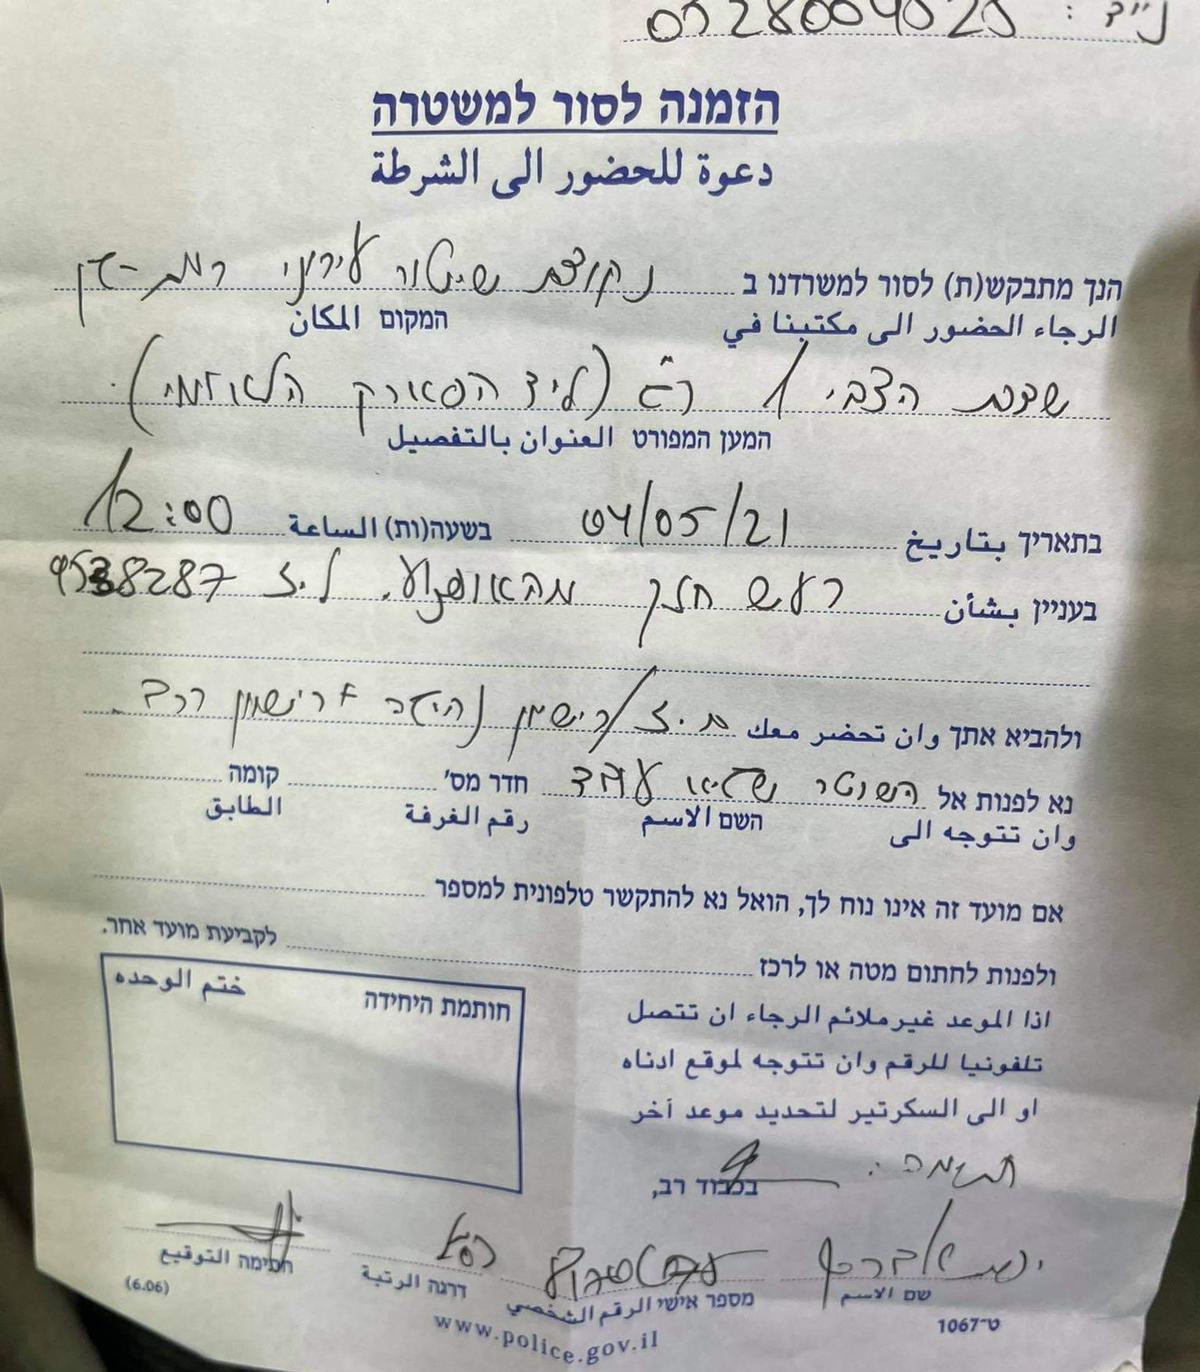 נייד:
הזמנה לסור למשטרה
دعوة للحضور الى الشرطة
הנך מתבקש(ת) לסור למשרדנו ב נקודת שיטור עירוני רמת-גן
الرجاء الحضور الى مكتبنا في המקום المكان
שדרת הצבי 1 ר"ג (ליד הפארק הלאומי).
המען המפורט العنوان بالتفصيل
בתאריך بتاريخ 04/05/21 בשעה(ות) الساعة 12:00
בעניין بشأن רעש חזק מהאופנוע. ל.ז
ולהביא אתך وان تحضر معك ת.ז / רישיון נהיגה + רישיון רכב.
נא לפנות אל השוטר חדר מס' קומה
وان تتوجه الى השם الاسم رقم الغرفة الطابق
אם מועד זה אינו נוח לך, הואל נא להתקשר טלפונית למספר
ולפנות לחתום מטה או לרכז לקביעת מועד אחר.
اذا الموعد غير ملائم الرجاء ان تتصل
تلفونيا للرقم وان تتوجه لموقع ادناه
او الى السكرتير لتحديد موعد أخر
חותמת היחידה ختم الوحده
חתימה:
בכבוד רב,
שם الاسم מספר אישי الرقم الشخصي דרגה الرتبة חתימה التوقيع
ט-1067 (6.06)
www.police.gov.il